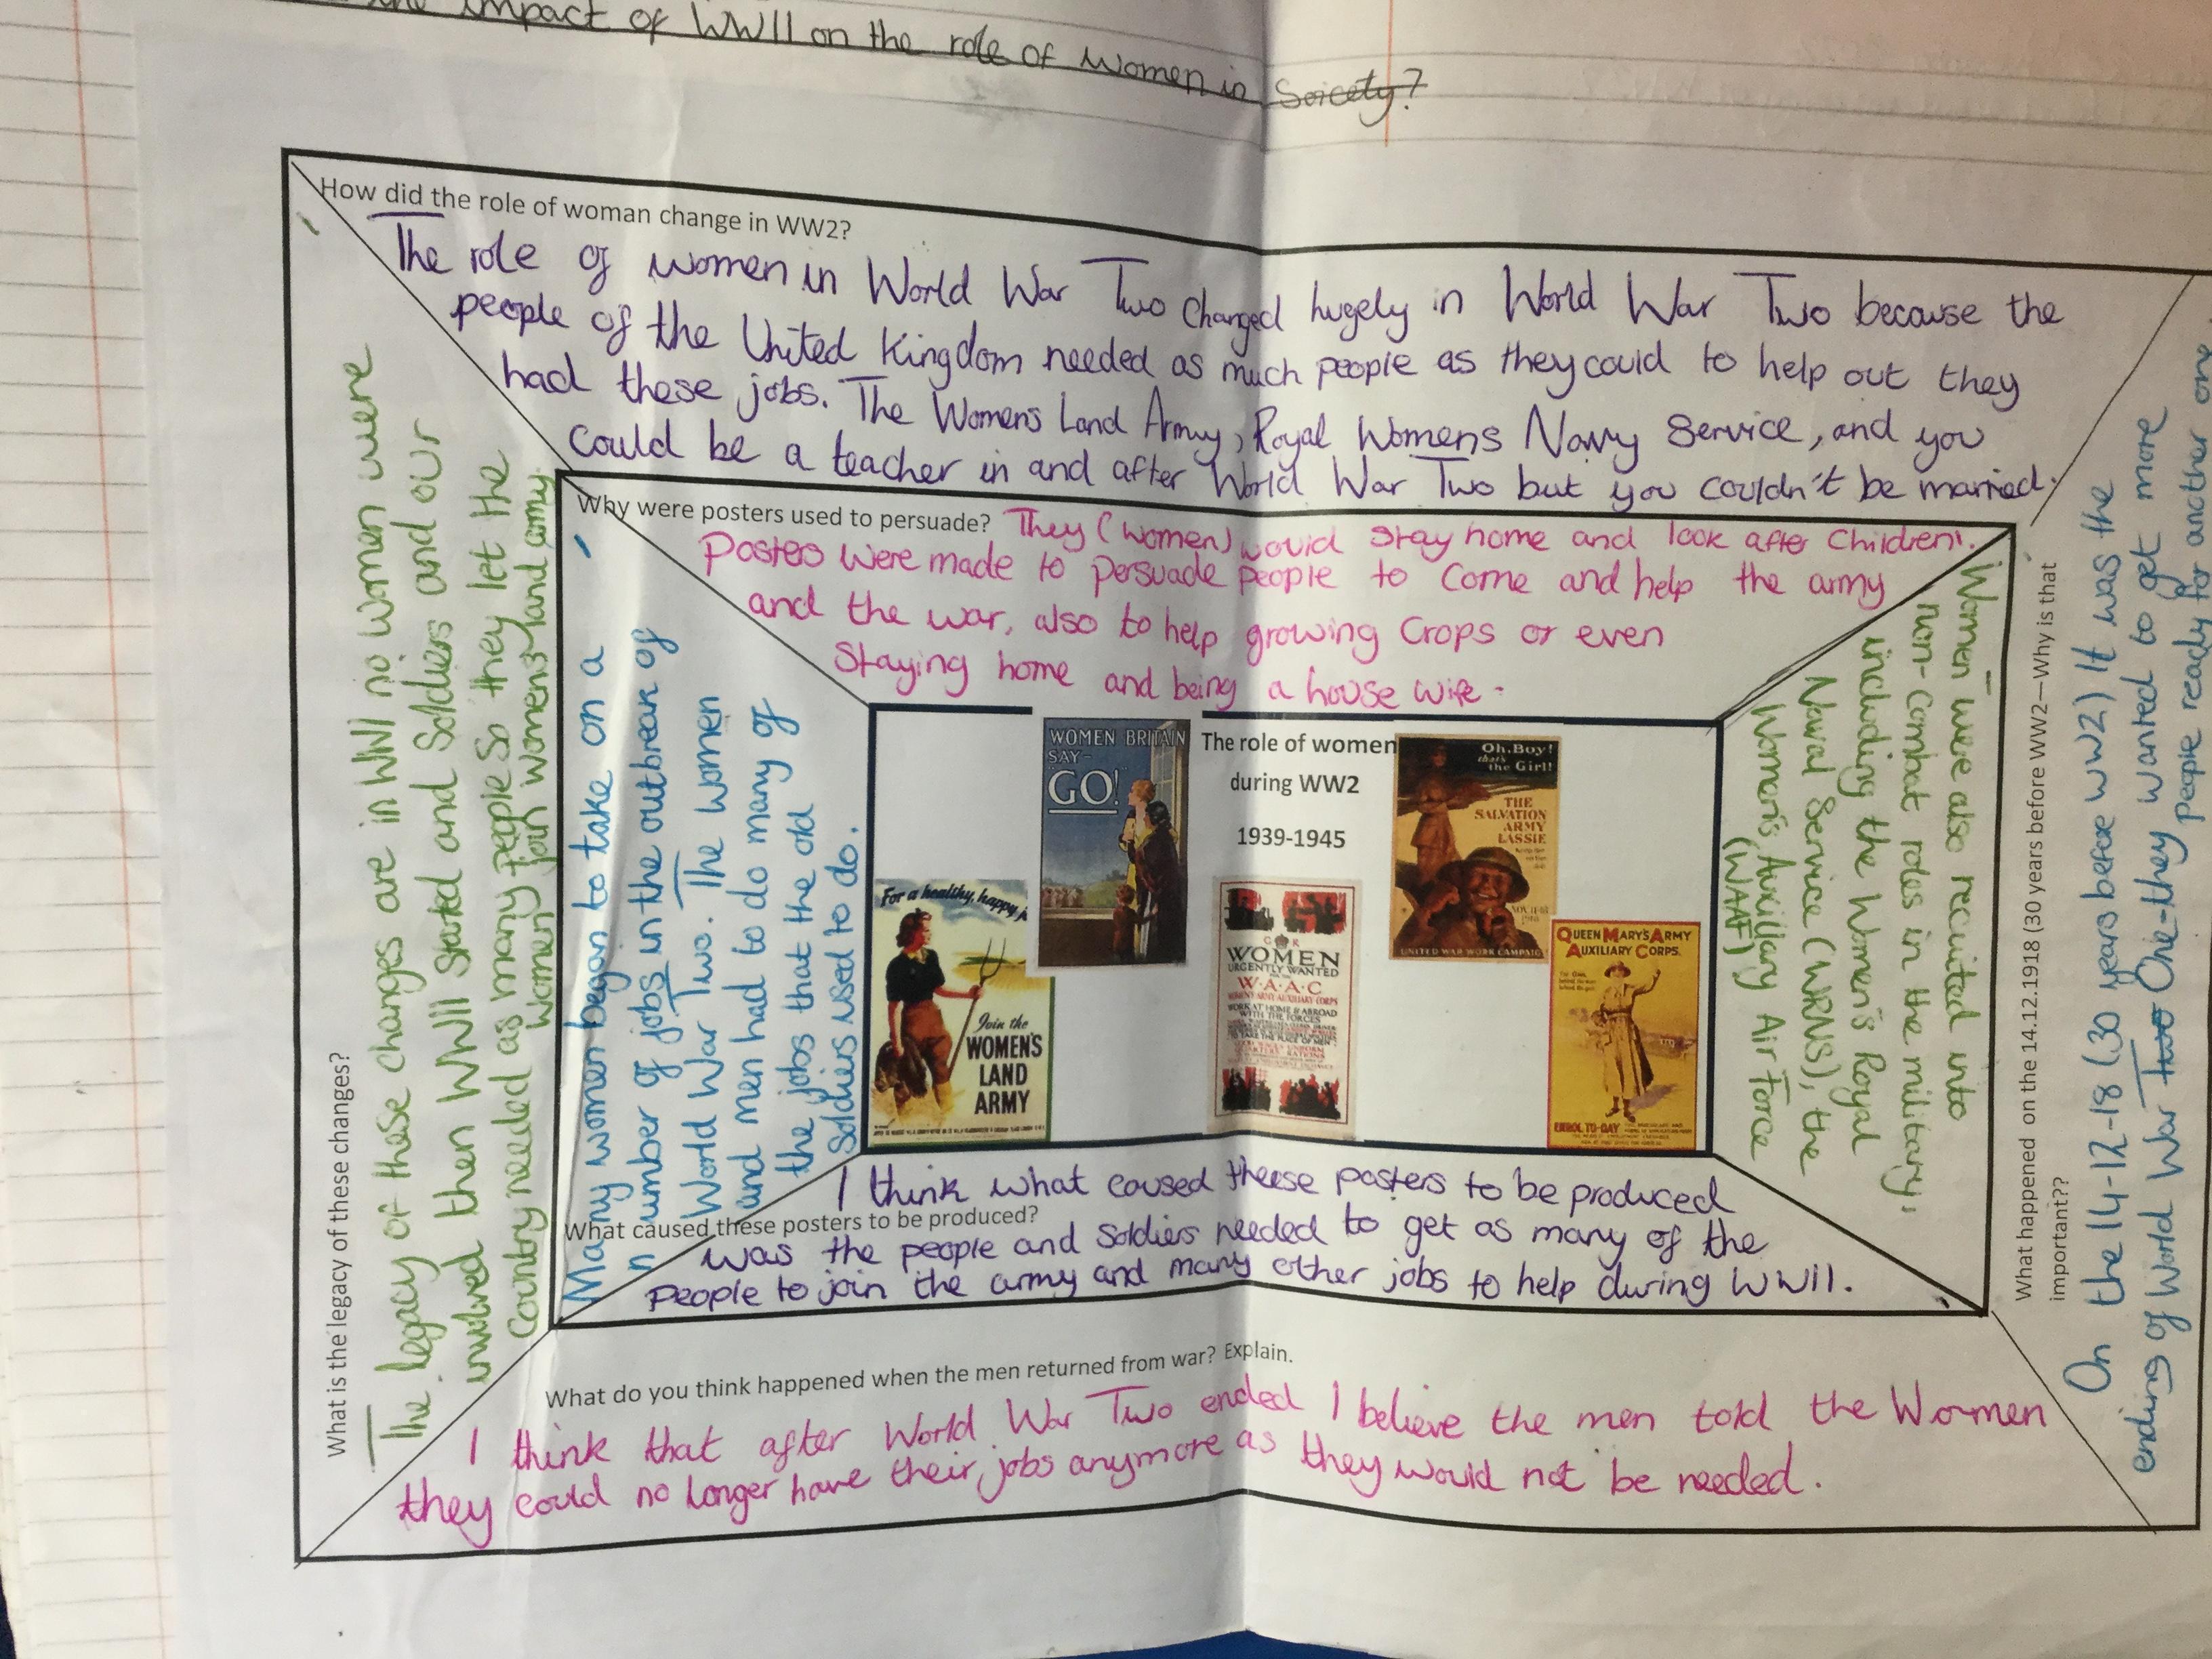 the impact of WWII on the role of women in Soicety?
How did the role of woman change in WW2?
The role of women in World War Two changed hugely in World War Two because the
people of the United Kingdom needed as much people as they could to help out they
had these jobs. The Womens Land Army, Royal Womens Navy Service, and you
could be a teacher in and after World War Two but you couldn't be married.
Why were posters used to persuade? They (women) would stay home and look after Children.
Posters were made to persuade people to come and help the army
and the war, also to help growing crops or even
staying home and being a house wife.
What is the legacy of these changes?
The legacy of these changes are in WWI no women were
involved then WWII started and soldiers and our
Country needed as many people so they let the
women join womens land army
Many women began to take on a
number of jobs in the outbreak of
World War Two. The women
and men had to do many of
the jobs that the old
Soldies used to do.
WOMEN BRITAIN
SAY-
"GO!"
The role of women
during WW2
1939-1945
Oh, Boy!
that's
the Girl!
THE
SALVATION
ARMY
LASSIE
NOV. 11-18
1918
UNITED WAR WORK CAMPAIGN
For a healthy, happy j
Join the
WOMEN'S
LAND
ARMY
G R
WOMEN
URGENTLY WANTED
W·A·A·C
WORK AT HOME & ABROAD
WITH THE FORCES
TO TAKE THE PLACE OF MEN
QUEEN MARY'S ARMY
AUXILIARY CORPS.
ENROL TO-DAY
Women were also recruited into
non-combat roles in the military,
including the Women's Royal
Naval Service (WRNS), the
Women's Auxiliary Air Force
(WAAF)
What happened on the 14.12.1918 (30 years before WW2—Why is that
important??
On the 14-12-18 (30 years before WW2) It was the
ending of World War Two One-they wanted to get more
people ready for another one
I think what caused theese posters to be produced
What caused these posters to be produced?
was the people and soldiers needed to get as many of the
people to join the army and many other jobs to help during WWII.
What do you think happened when the men returned from war? Explain.
I think that after World War Two ended I believe the men told the Women
they could no longer have their jobs anymore as they would not be needed.